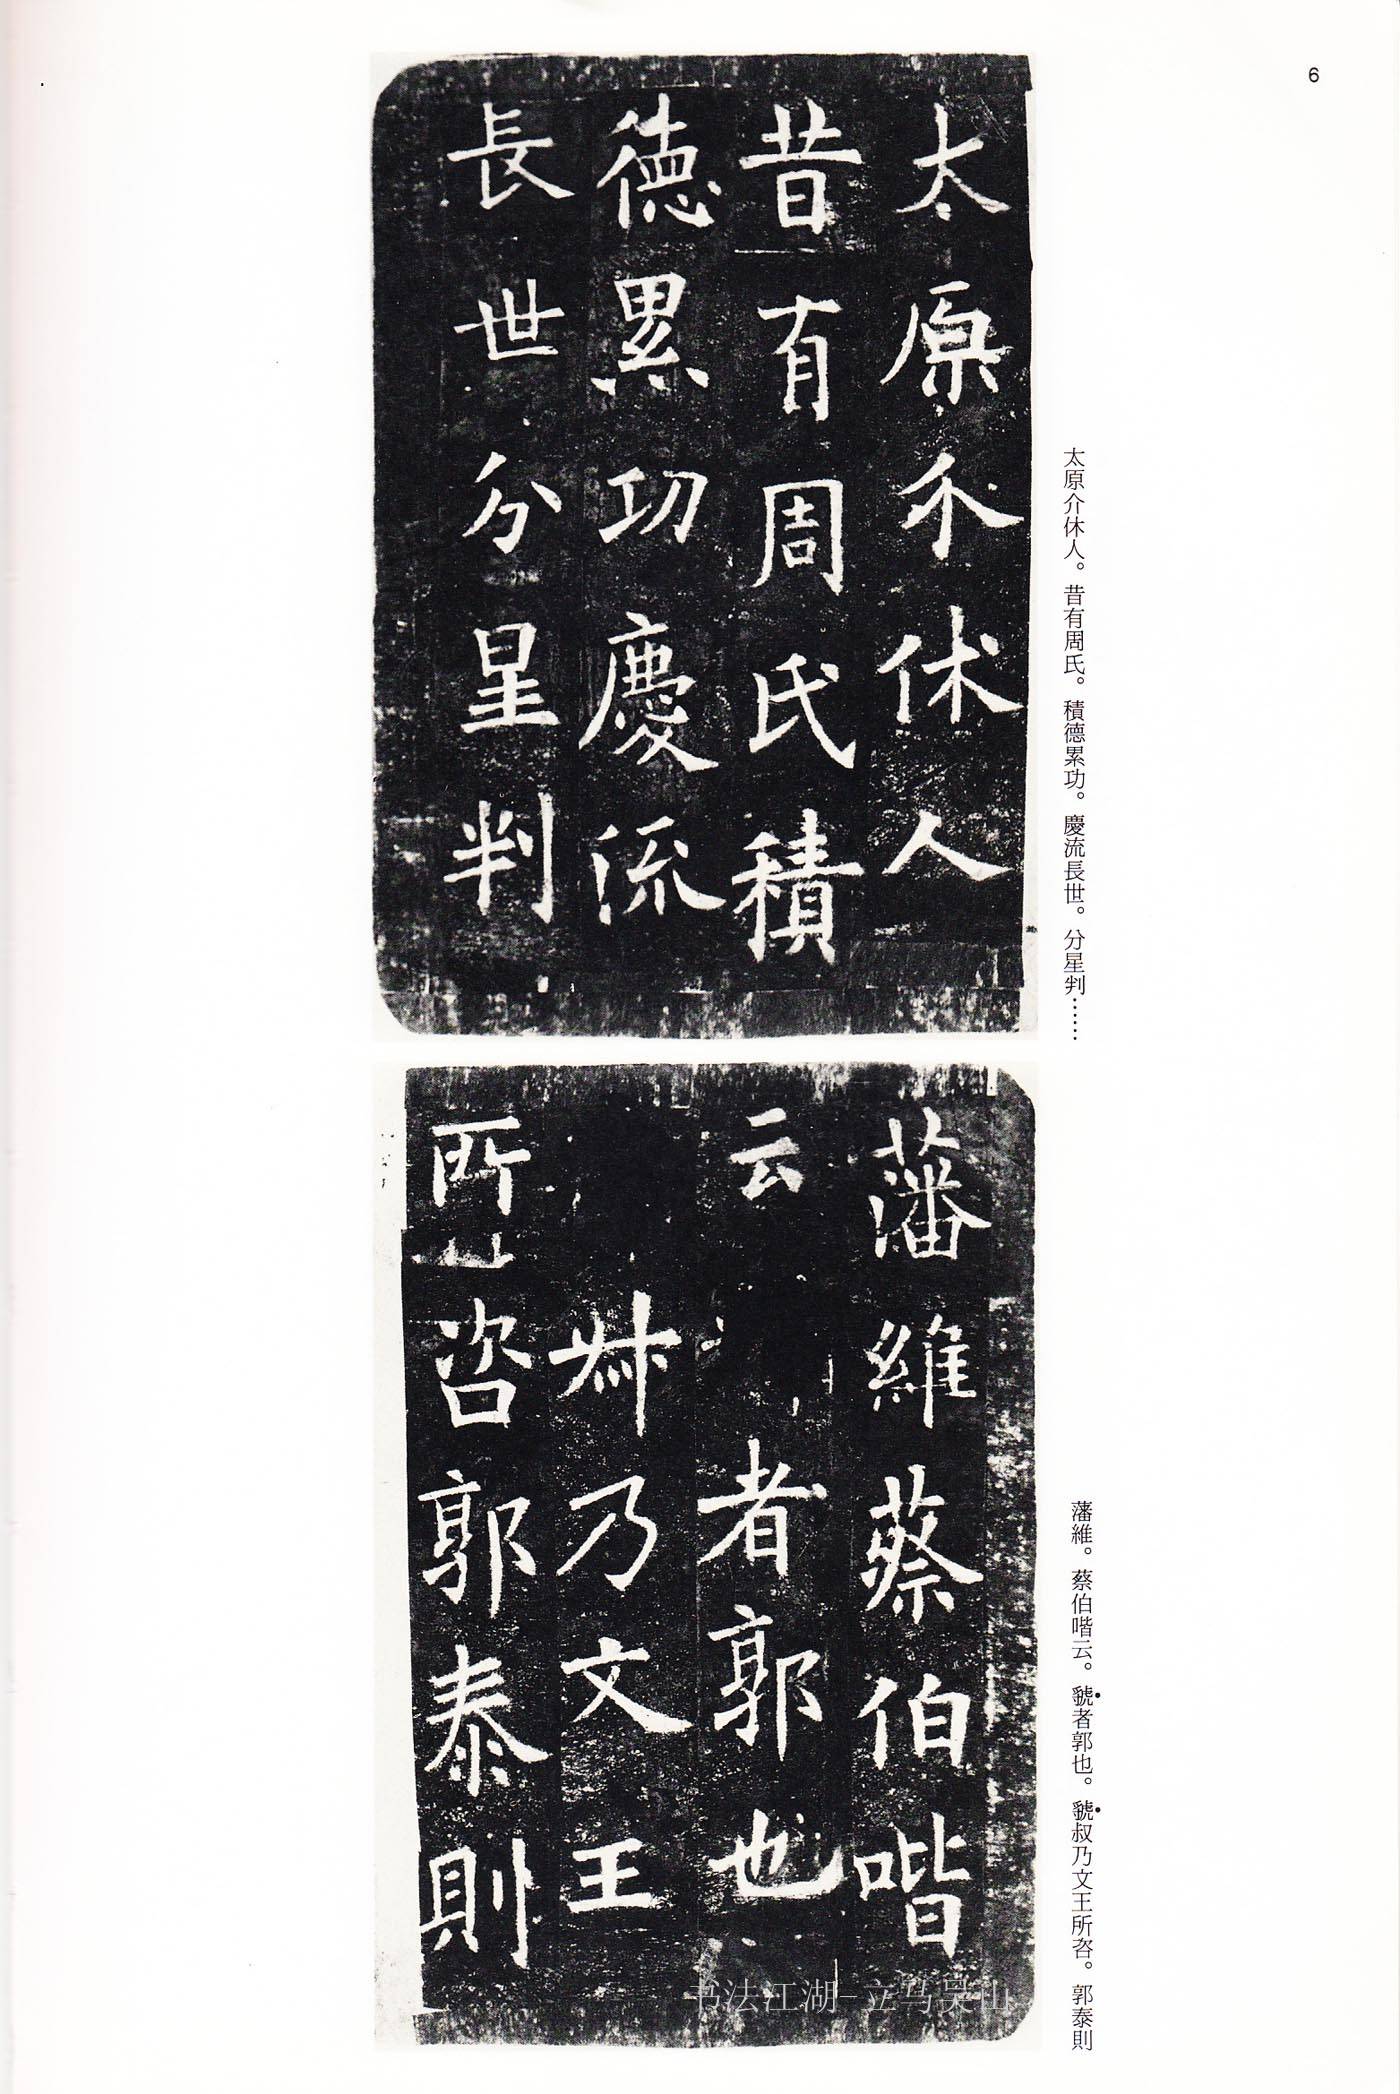 6
太原介休人
昔有周氏積
德累功慶流
長世分星判
太原介休人。昔有周氏。積德累功。慶流長世。分星判……
藩維蔡伯喈
云 者郭也
叔乃文王
所咨郭泰則
藩維。蔡伯喈云。虢者郭也。虢叔乃文王所咨。郭泰則
书法江湖-立马吴山